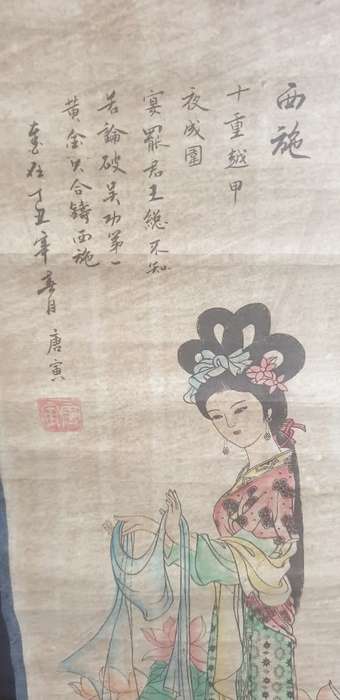 西施
十重越甲
夜成圍
宴罷君王總不知
若論破吳功第一
黃金只合鑄西施
歲在丁丑年春月 唐寅